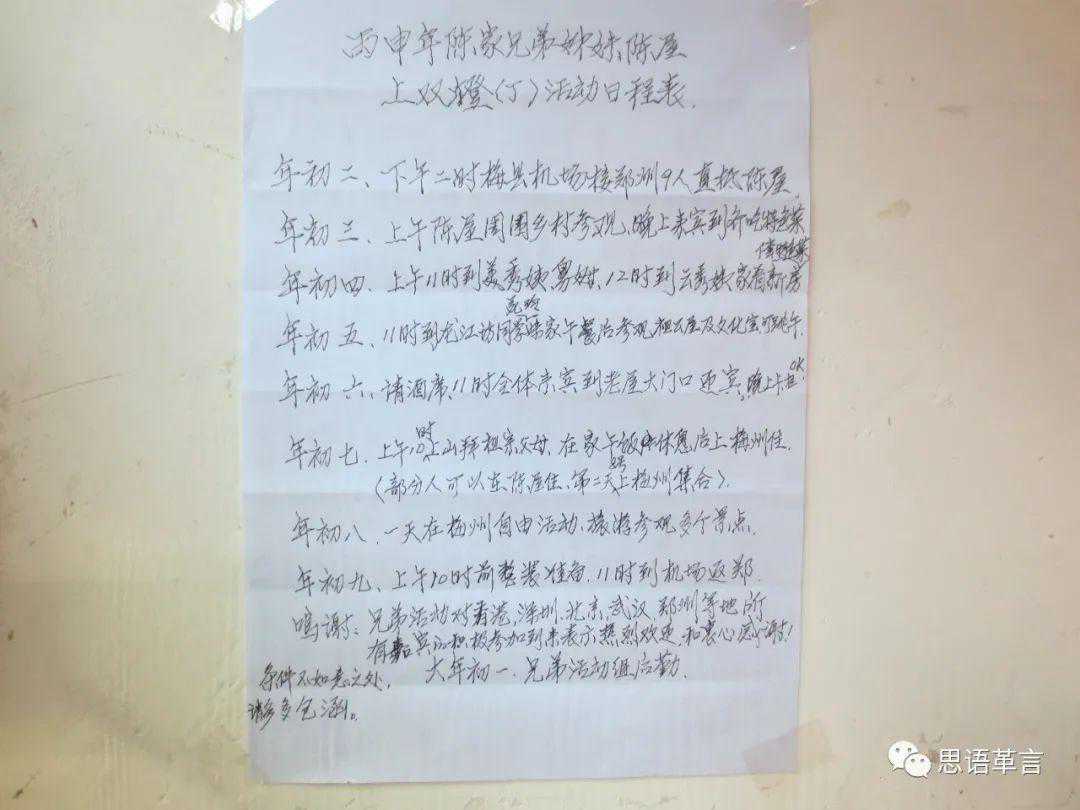 丙申年陈家兄弟姊妹陈屋
上双橙(丁)活动日程表.
年初二、下午二时梅县机场接郑州9人直抵陈屋.
年初三、上午陈屋周围乡村参观、晚上来宾到齐吃特色菜
年初四、上午11时到美秀姨舅姆、12时到云秀姨家看新房
年初五、11时到龙江坊同学家午餐后参观祖公屋及文化室
年初六、请酒席、11时全体亲宾到老屋大门口迎宾,晚上卡拉OK.
年初七、上午10时上山拜祖宗父母、在家午饭休息后上梅州住.
(部分人可以在陈屋住、第二天上梅州集合).
年初八、一天在梅州自由活动、旅游参观多个景点.
年初九、上午10时前整装准备、11时到机场返郑.
鸣谢:兄弟活动对香港、深圳、北京、武汉、郑州等地所
有嘉宾的积极参加到来表示热烈欢迎、和衷心感谢!
大年初一、兄弟活动组后勤.
条件不如意之处,
请多多包涵。
思语革言